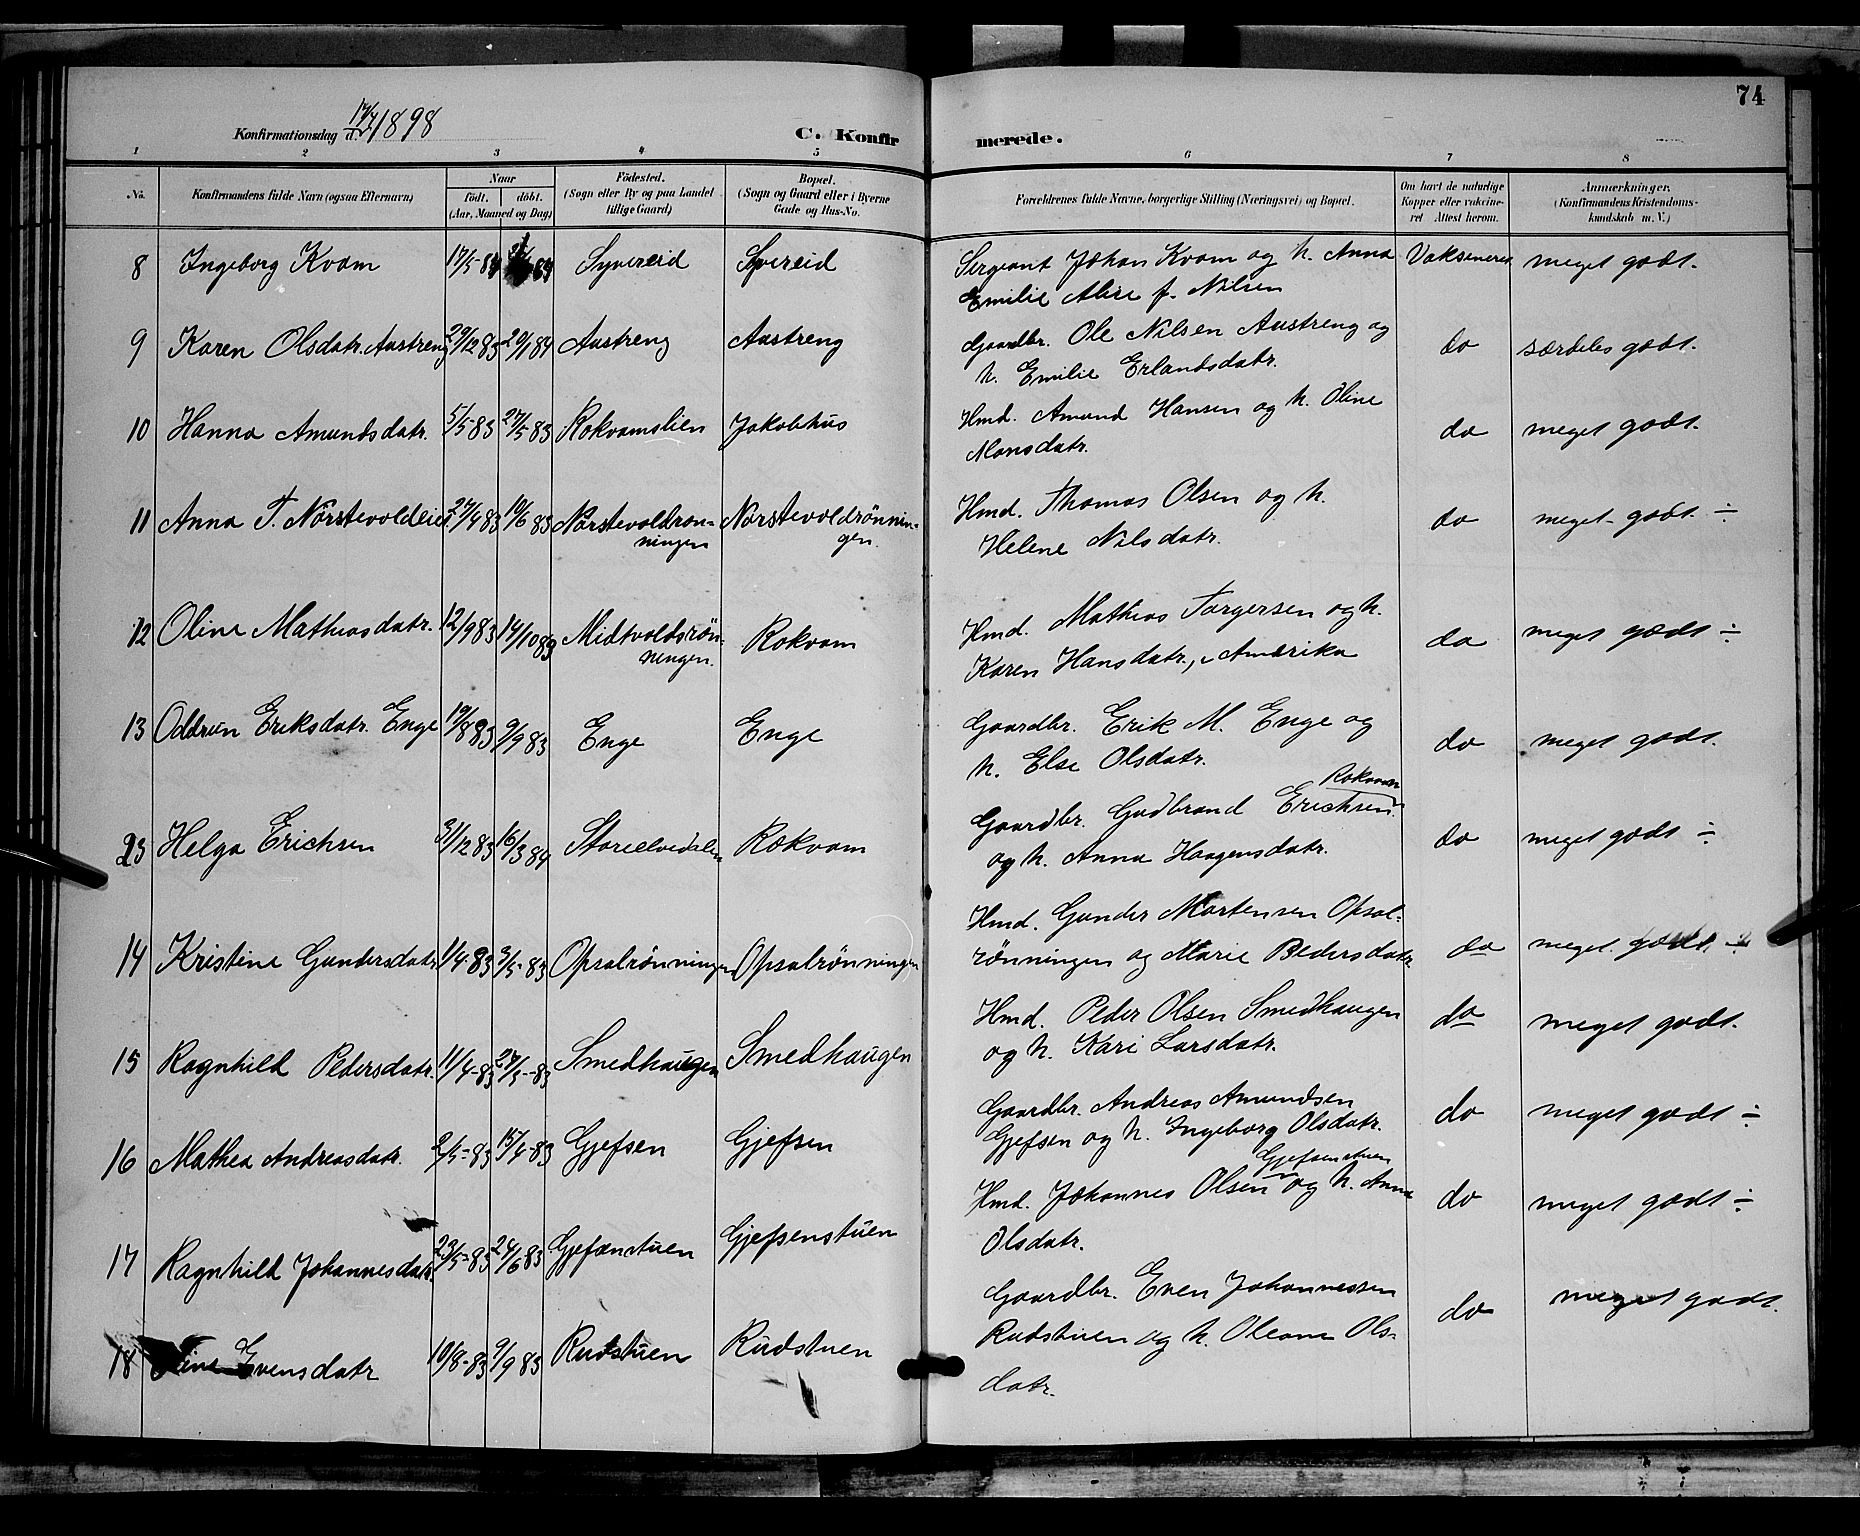 74
Konfirmationsdag d. 17/4 1898
C. Konfirmerede.
1 2 3 4 5 6 7 8
No. Konfirmandens fulde Navn (ogsaa Efternavn) Naar født. døbt. (Aar, Maaned og Dag) Fødested. (Sogn eller By og paa Landet tillige Gaard) Bopæl. (Sogn og Gaard eller i Byerne Gade og Hus-No. Forældrenes fulde Navne, borgerlige Stilling (Næringsvei) og Bopæl. Om havt de naturlige Kopper eller vaccineret Attest herom. Anmærkninger. (Konfirmandens Kristendomskundskab m. V.)
8 Ingeborg Kvam 17/5 84 84 Syvereid Syvereid Sergeant Johan Kvam og h. Anna Vaksineret meget godt.
Emilie Alise f. Nilsen
9 Karen Olsdatr. Austreng 29/12 83 20/1 84 Austreng Austreng Gaardbr. Ole Nilsen Austreng og do særdeles godt.
h. Emilie Erlandsdatr.
10 Hanna Amundsdatr. 5/5 83 27/5 83 Rokvamslien Jakobhus Hmd. Amund Hansen og h. Oline do meget godt.
Monsdatr.
11 Anna T. Nörstevoldeiet 27/4 83 10/6 83 Nörstevoldrön- Nörstevoldrönnin- Hmd. Thomas Olsen og h. do meget godt ÷
ningen gen. Helene Nilsdatr.
12 Oline Mathiasdatr. 12/9 83 14/10 83 Midtvoldsrön- Rokvam Hmd. Mathias Torgersen og h. do meget godt ÷
ningen. Karen Hansdatr., Amerika
13 Oddrun Eriksdatr. Enge 19/8 83 9/9 83 Enge Enge Gaardbr. Erik M. Enge og do meget godt.
h. Else Olsdatr.
Rokvam
23 Helga Erichsen 31/12 83 16/3 84 Storelvedalen Rokvam Gaardbr. Gudbrand Erichsen do meget godt ÷
og h. Anna Haagensdatr.
14 Kristine Gundersdatr. 1/4 83 3/5 83 Opsalrönningen Opsalrönningen Hmd. Gunder Mortensen Opsal- do meget godt ÷
rönningen og Marie Pedersdatr
15 Ragnhild Pedersdatr. 11/4 83 27/5 83 Smedhaugen Smedhaugen Hmd. Peder Olsen Smedhaugen do meget godt.
og h. Kari Larsdatr.
16 Mathea Andreasdatr. 2/5 83 15/4 83 Gjefsen Gjefsen Gaardbr. Andreas Amundsen do meget godt ÷
Gjefsen og h. Ingeborg Olsdatr.
Gjefsenstuen
17 Ragnhild Johannesdatr. 23/5 83 24/6 83 Gjefsenstuen Gjefsenstuen Hmd. Johannes Olsen og h. Anna do meget godt ÷
Olsdatr.
18 Evensdatr 10/8 83 9/9 83 Rudstuen Rudstuen Gaardbr. Even Johannessen do meget godt.
Rudstuen og h. Oleane Ols-
datr.